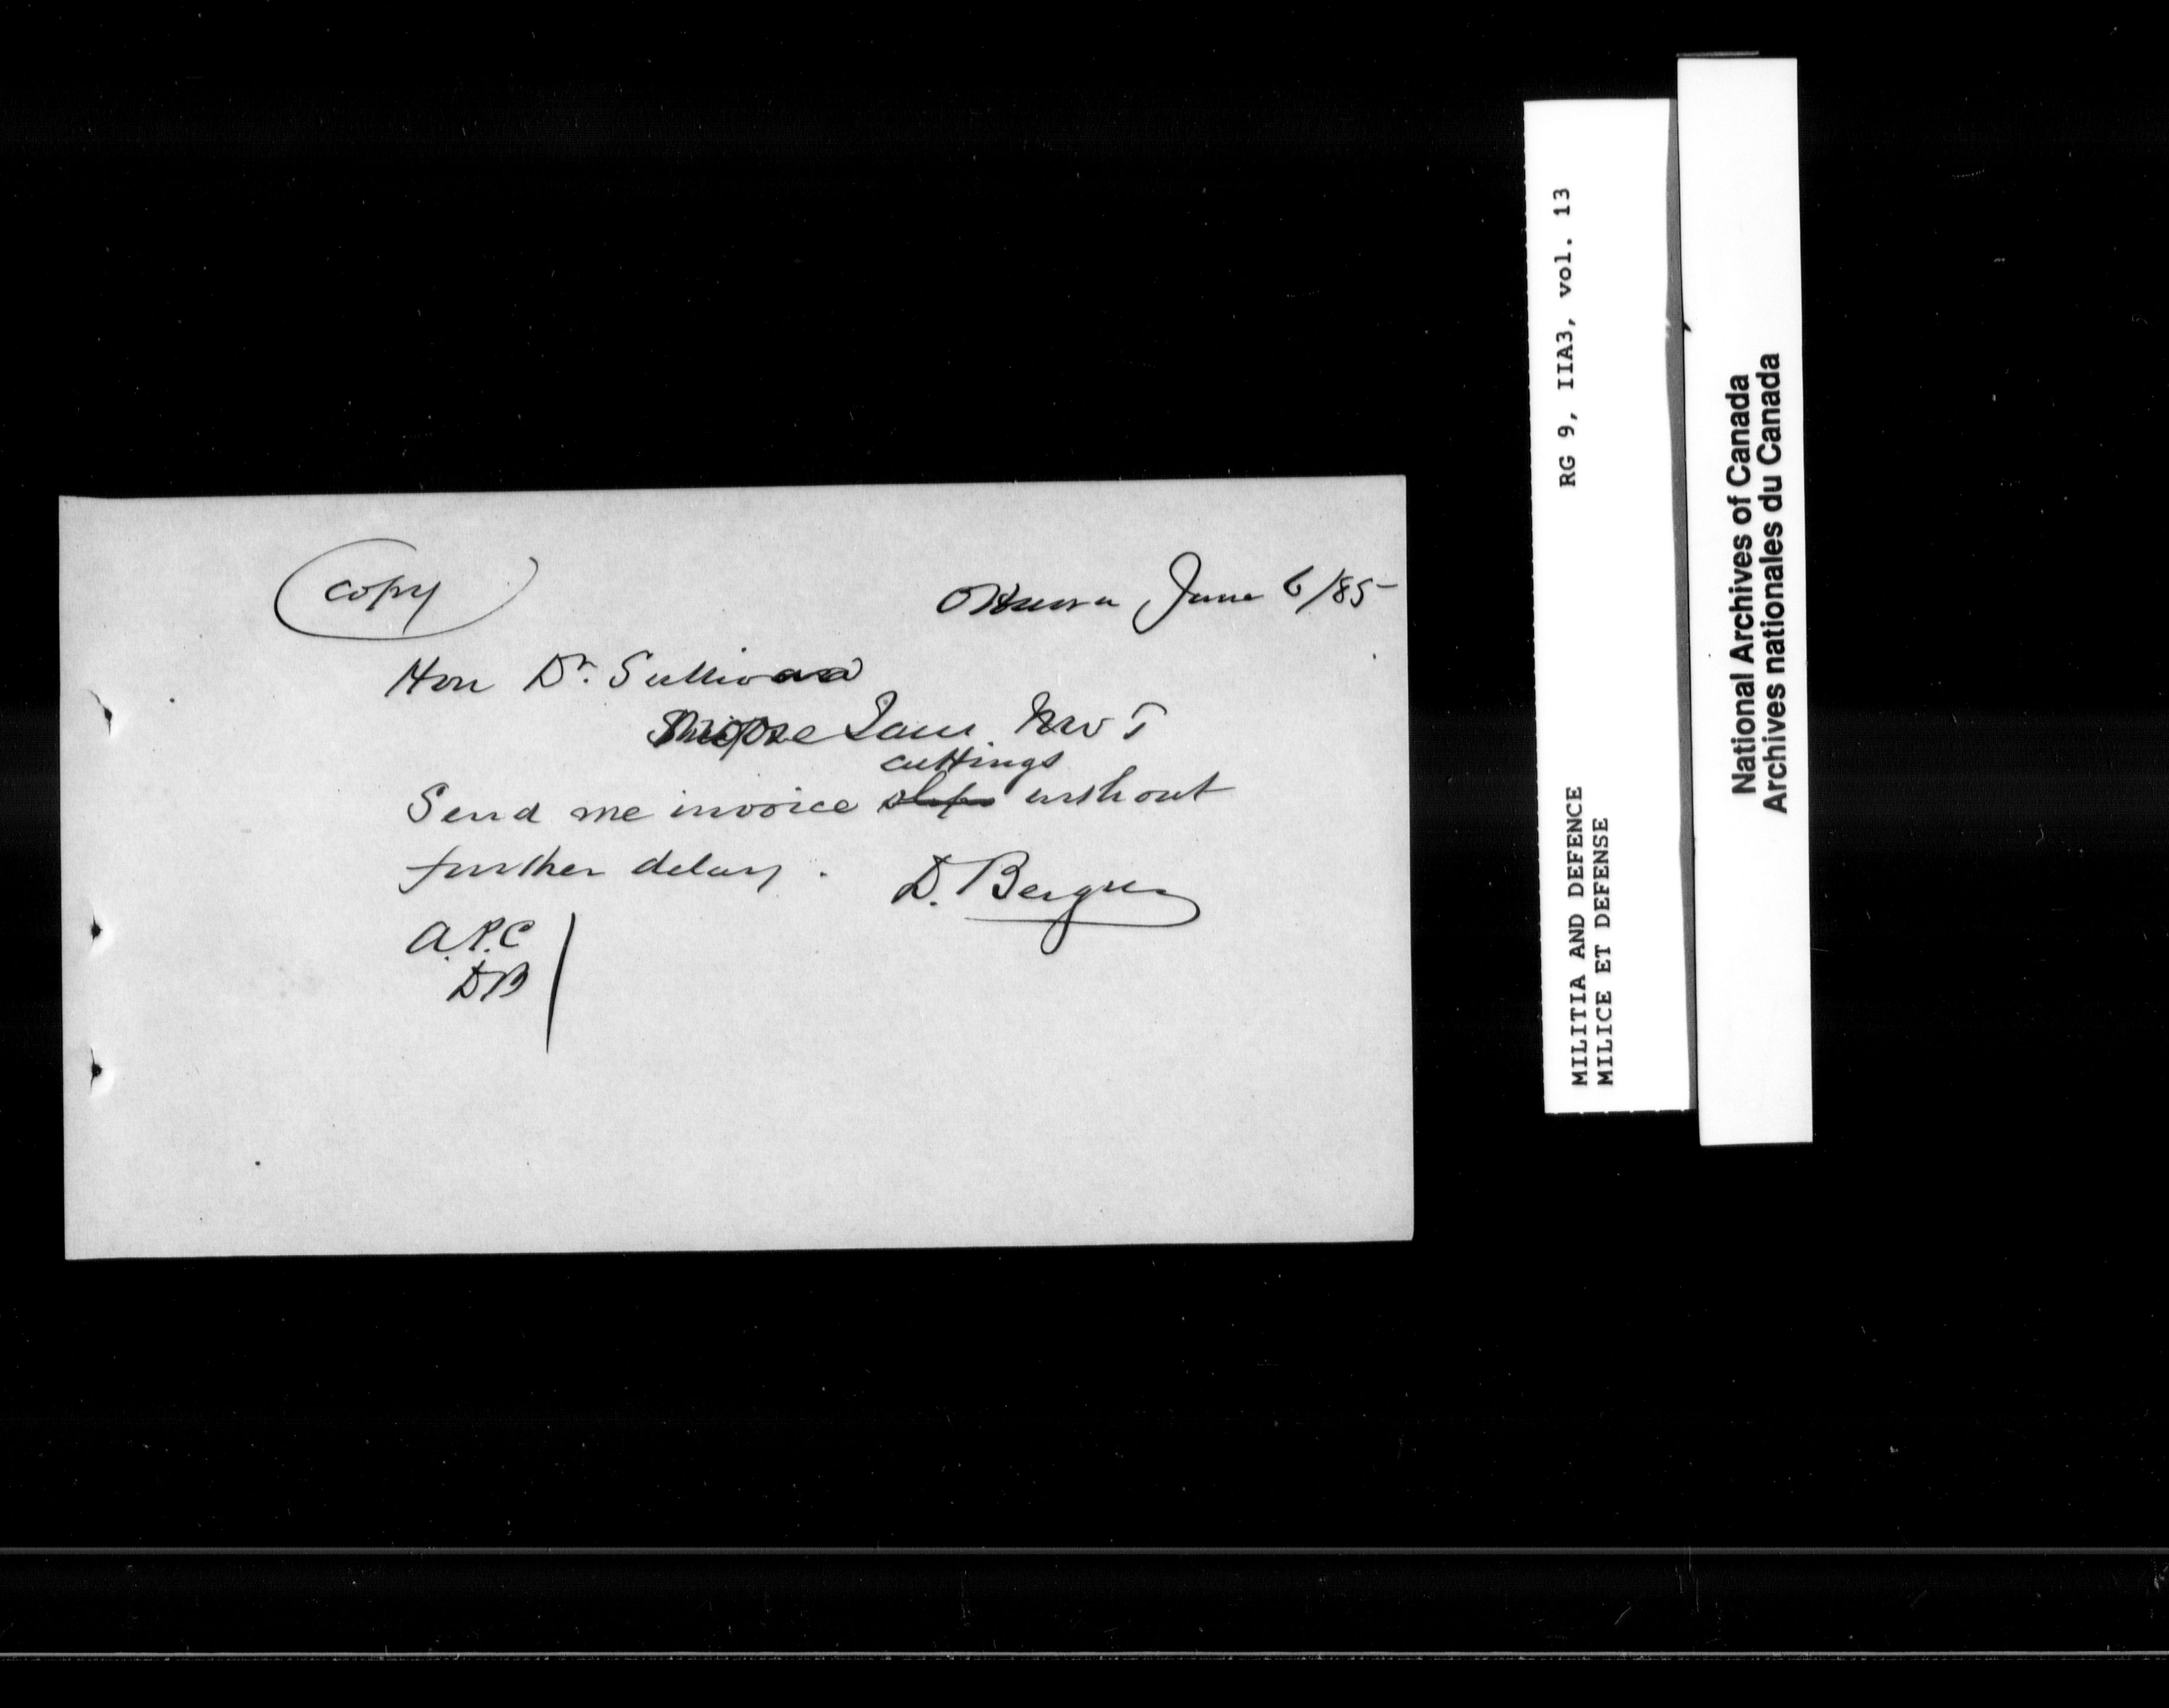 Copy
Ottawa June 6/85
Hon Dr. Sullivan
Moose Jaw NWT
cuttings
Send me invoice slips without
further delay.
D. Bergin
A.P.C
DB
RG 9, IIA3, vol. 13
MILITIA AND DEFENCE
MILICE ET DEFENSE
National Archives of Canada
Archives nationales du Canada